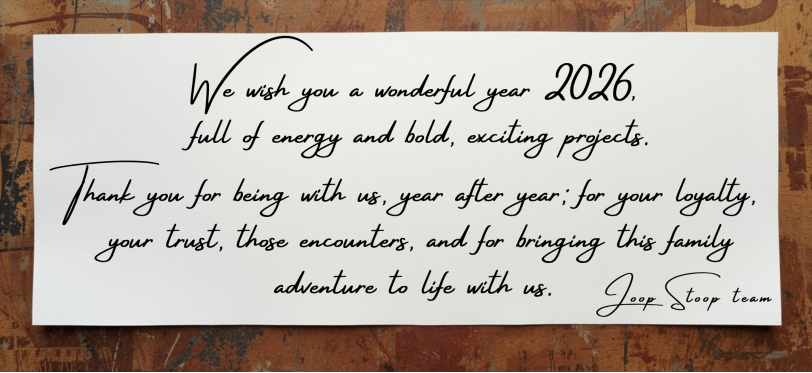 We wish you a wonderful year 2026,
full of energy and bold, exciting projects.
Thank you for being with us, year after year; for your loyalty,
your trust, those encounters, and for bringing this family
adventure to life with us.
Joop Stoop team